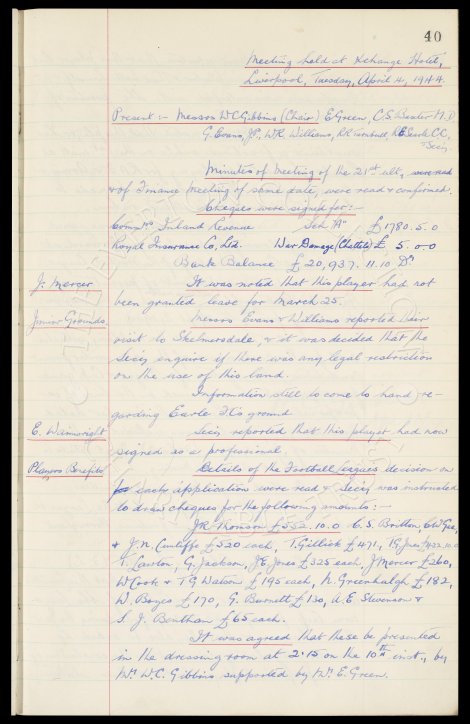 40
Meeting held at Exchange Hotel,
Liverpool, Tuesday, April 4, 1944.
Present :- Messrs W.C. Gibbins (Chair) E. Green, C.S. Baxter M.D.
G. Evans, J.P., W.R. Williams, R.R. Turnbull, R.E. Searle C.C.,
& Secy.
Minutes of Meeting of the 21st ult, were read
& of Finance Meeting of same date, were read & confirmed.
Cheques were signed for :-
Commrs Inland Revenue Sch "A" £1780. 5. 0
Royal Insurance Co, Ltd. War Damage (Chattels) £ 5. 0. 0
Bank Balance £20,937. 11. 10 Dr
J. Mercer It was noted that this player had not
been granted leave for March 25.
Junior Grounds Messrs Evans & Williams reported their
visit to Skelmersdale, & it was decided that the
Secy enquire if there was any legal restriction
on the use of this land.
Information still to come to hand re-
garding Earle FC's ground
E. Wainwright Secy reported that this player had now
signed as a professional.
Players Benefits Details of the Football Leagues decision on
each application were read & Secy was instructed
to draw cheques for the following amounts :-
J.R. Thomson £552. 10. 0 C.S. Britton, C.W. Gee,
& J.N. Cunliffe £520 each, T. Gillick £471, T.G. Jones £422.10.0
T. Lawton, G. Jackson, J.E. Jones £325 each, J. Mercer £260,
W Cook & T G Watson £195 each, N. Greenhalgh £182,
W. Boyes £170, G. Burnett £130, A.E. Stevenson &
S. J. Bentham £65 each.
It was agreed that these be presented
in the dressing room at 2.15 on the 10th inst., by
Mr. W.C. Gibbins supported by Mr. E. Green.